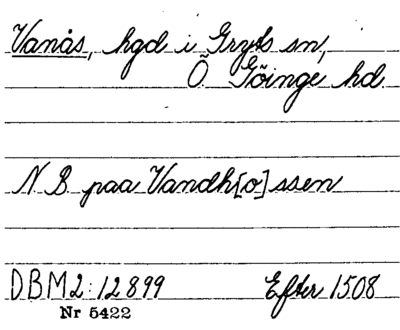 Vanås, hgd i Gryts sn,
Ö Göinge hd
N B paa Vandh[o]ssen
DBM2:12899 Efter 1508
Nr 5422